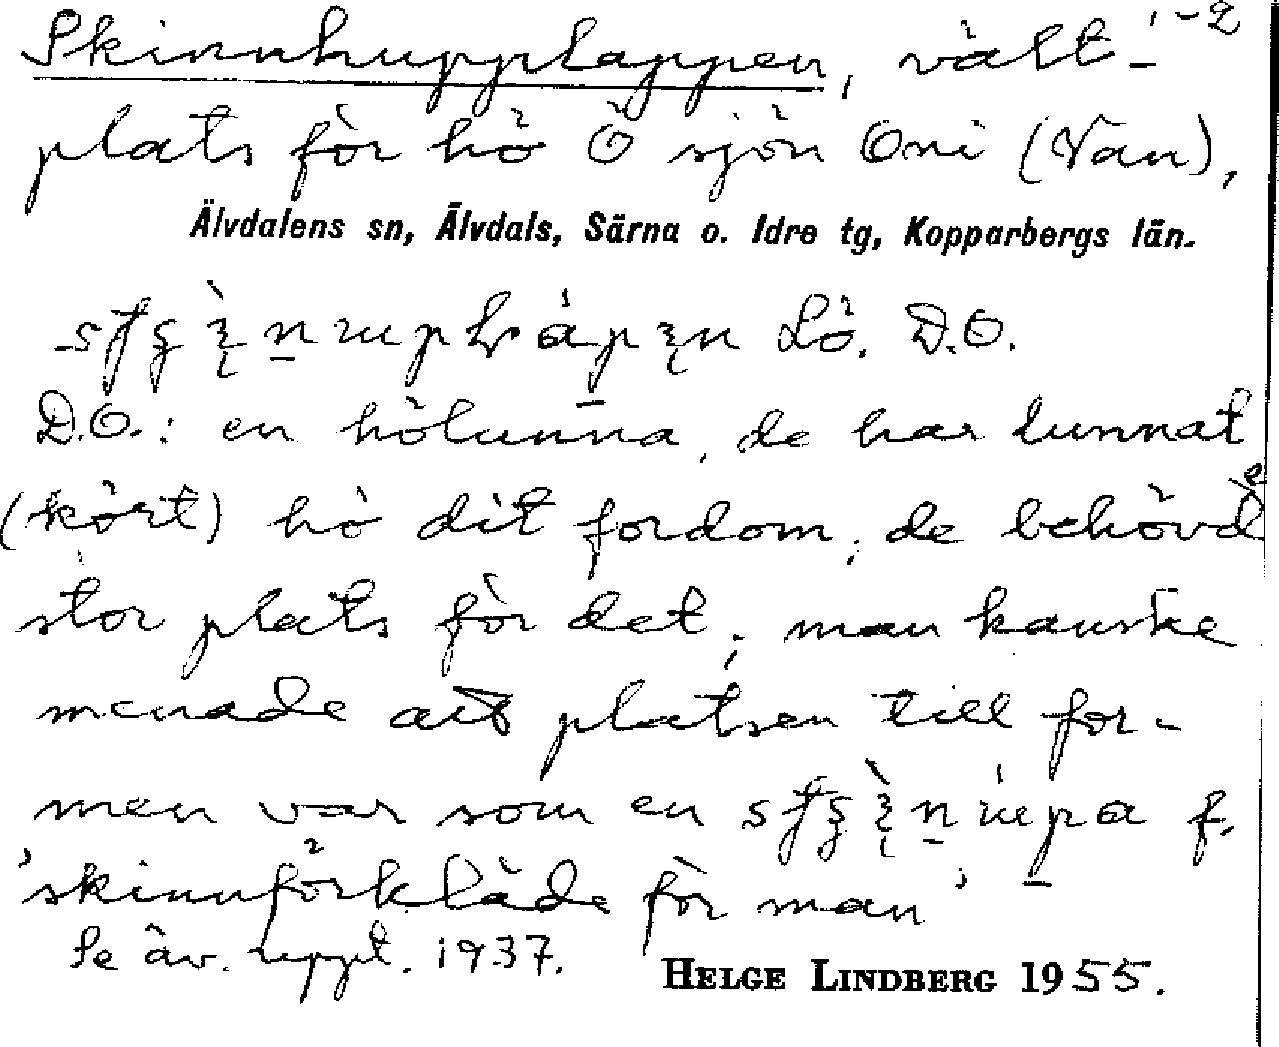 Skinnhupplappen, vält- 1-2
plats för hö Ö sjön Oni (Van),
Älvdalens sn, Älvdals, Särna o. Idre tg, Kopparbergs län.
Lö. D.O.
D.O.: en hölunna, de har lunnat
(kört) hö dit fordom, de behövde
stor plats för det; man kanske
menade att platsen till for-
men var som en f.
'skinnförkläde för man'
Se äv. uppt. 1937.
HELGE LINDBERG 1955.